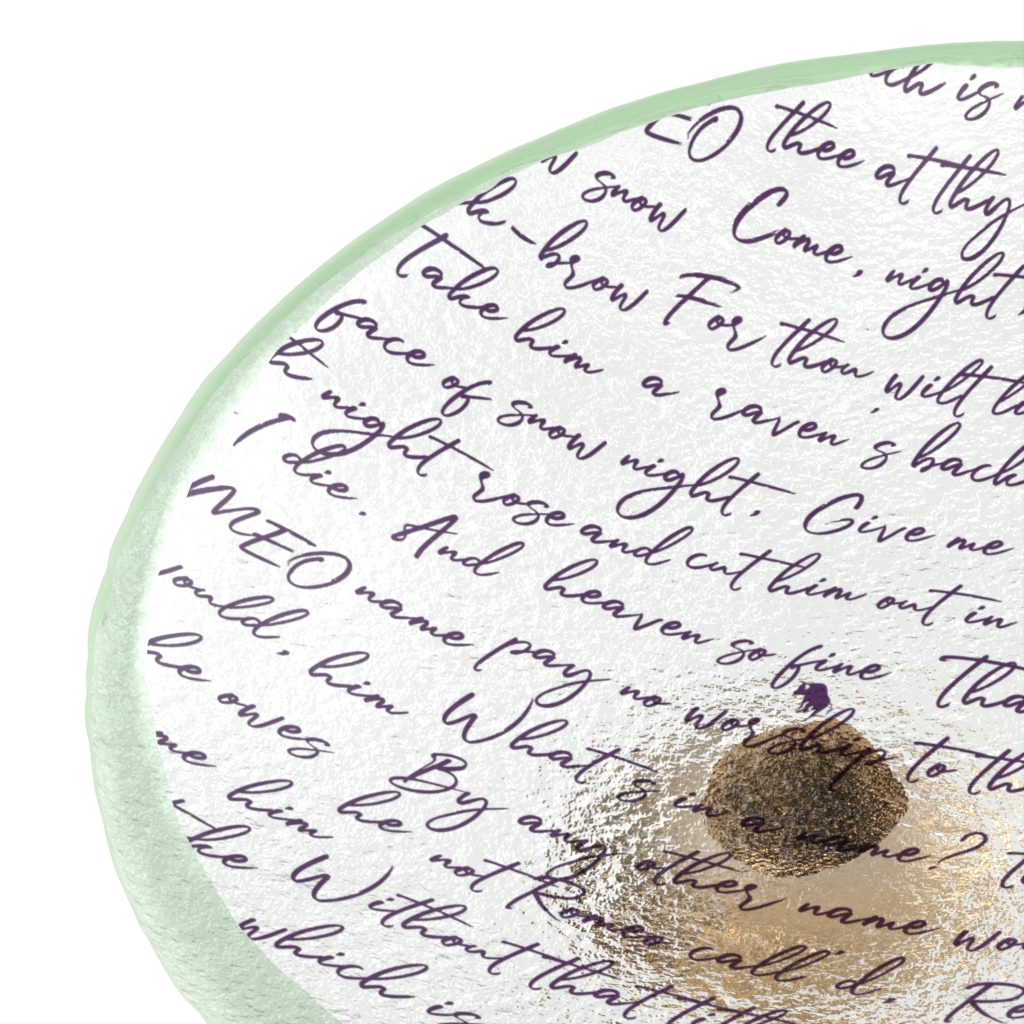 is
EO thee at thy
snow Come, night,
k-brow For thou wilt
Take him a raven's back
face of snow night, Give me
th night rose and cut him out in
I die. And heaven so fine Tha
MEO name pay no worship to th
ould, him What's in a name?
he owes By any other name wo
me him he not Romeo call'd, Re
the Without that
which is